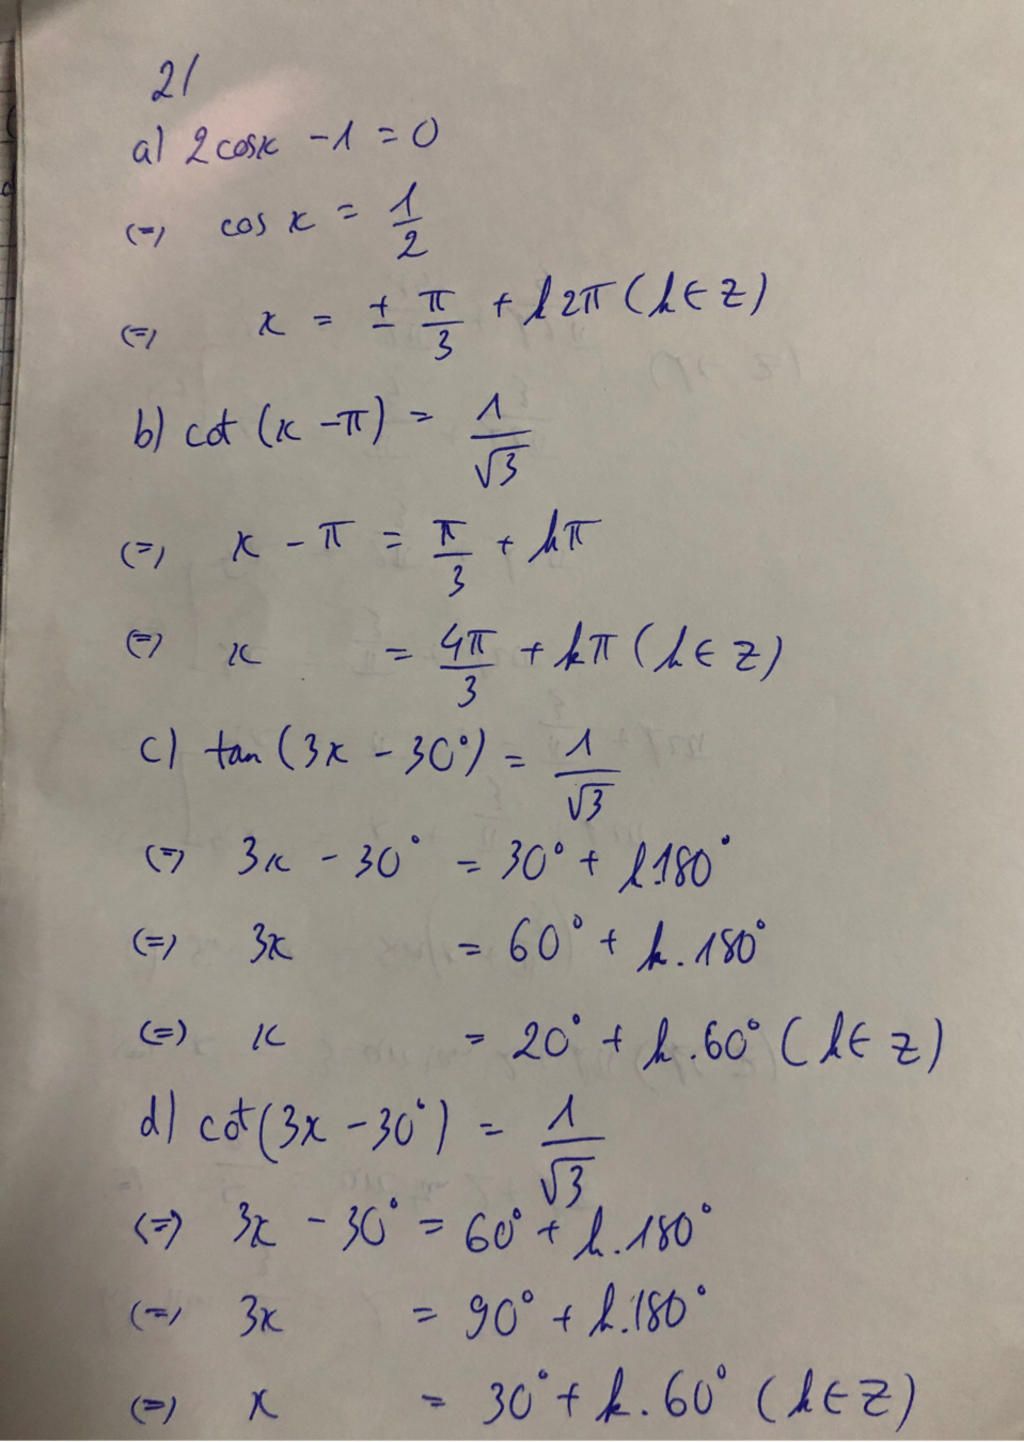 2/
a) 2cosx - 1 = 0
(=) cos x = 1/2
(=) x = ± π/3 + k2π (k ∈ Z)
b) cot (x - π) = 1/√3
(=) x - π = π/3 + kπ
(=) x = 4π/3 + kπ (k ∈ Z)
c) tan (3x - 30°) = 1/√3
(=) 3x - 30° = 30° + k.180°
(=) 3x = 60° + k.180°
(=) x = 20° + k.60° (k ∈ Z)
d) cot (3x - 30°) = 1/√3
(=) 3x - 30° = 60° + k.180°
(=) 3x = 90° + k.180°
(=) x = 30° + k.60° (k ∈ Z)